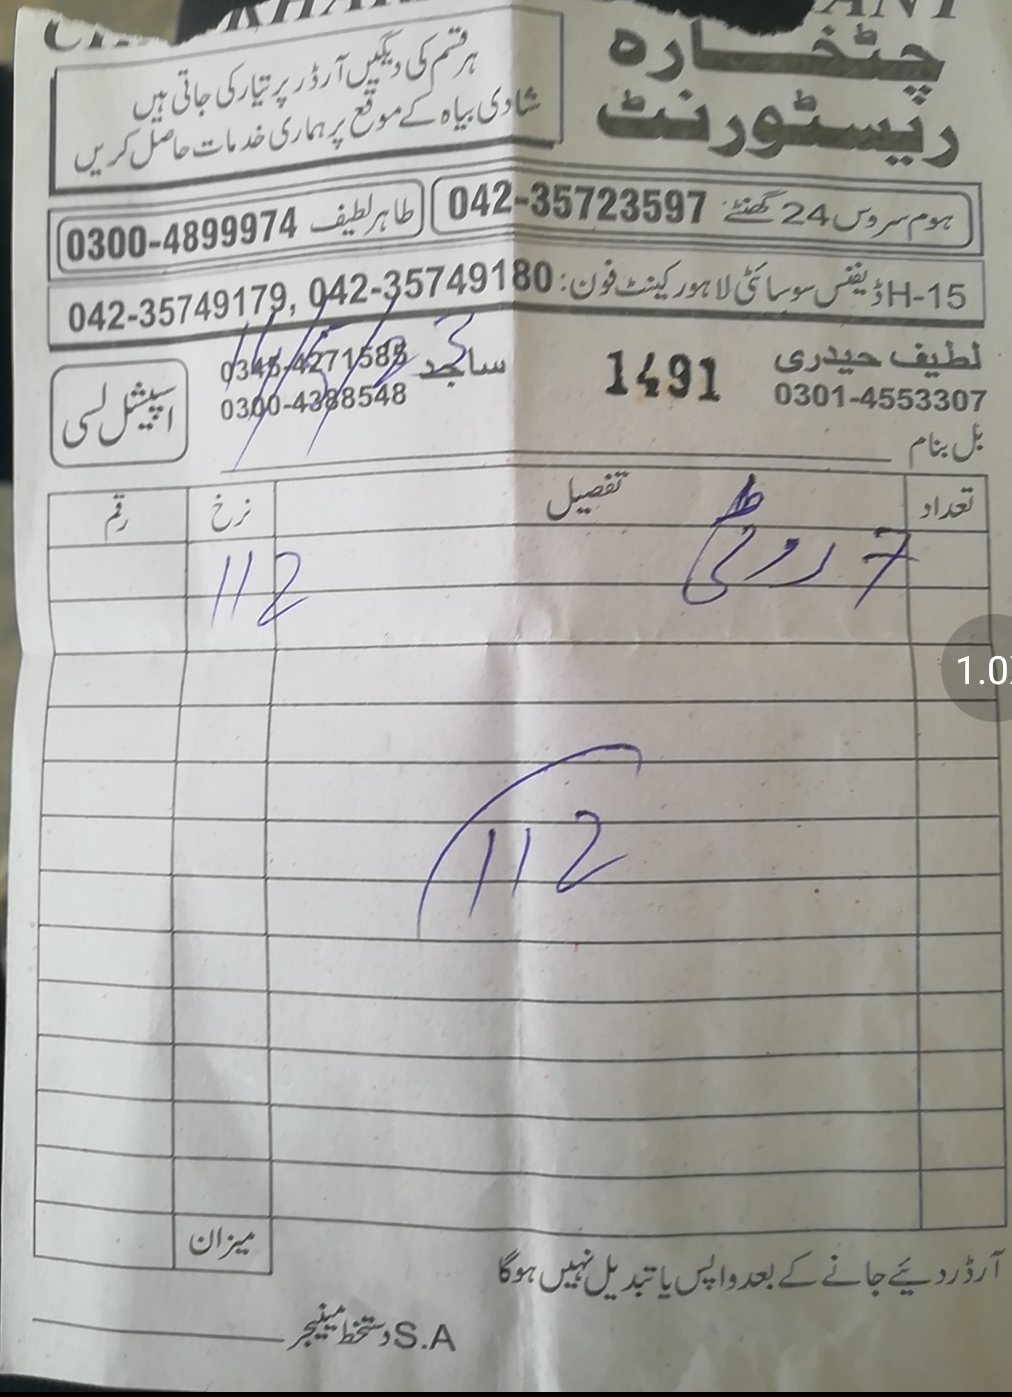 چٹخارہ
ریسٹورنٹ
ہر قسم کی دیگیں آرڈر پر تیار کی جاتی ہیں
شادی بیاہ کے موقع پر ہماری خدمات حاصل کریں
ہوم سروس 24 گھنٹے 042-35723597
طاہر لطیف 0300-4899974
H-15 ڈیفنس سوسائٹی لاہور کینٹ فون: 042-35749180 ,042-35749179
لطیف حیدری
0301-4553307
1491
ساجد 0345-4271585
0300-4388548
اسپیشل لسی
بل بنام
تعداد تفصیل نرخ رقم
7 روٹی 112
112
میزان
آرڈر دیئے جانے کے بعد واپس یا تبدیل نہیں ہوگا
دستخط مینیجر S.A
1.0